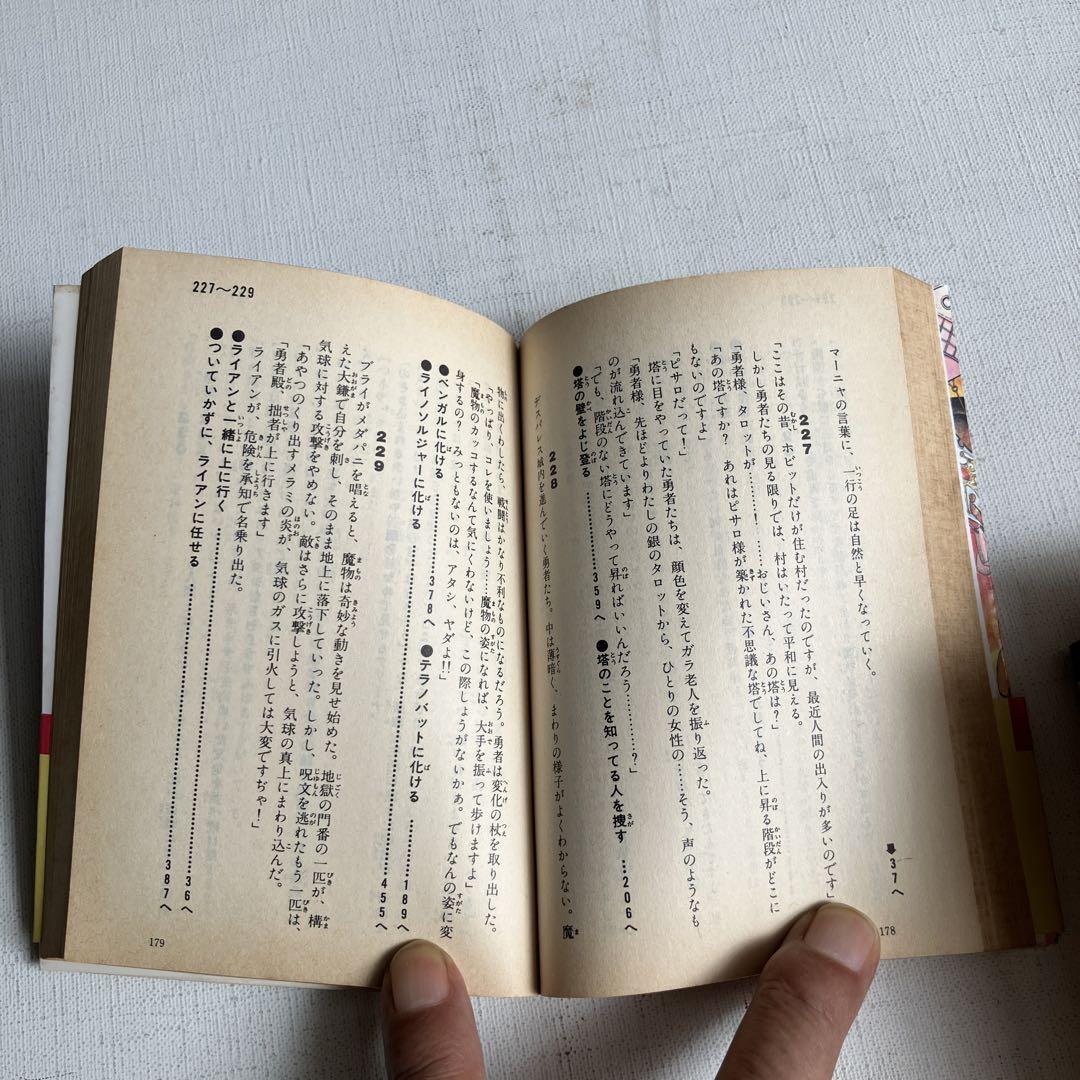 マーニャの言葉に、一行の足は自然と早くなっていく。
➡37へ
227
「ここはその昔、ホビットだけが住む村だったのですが、最近人間の出入りが多いのです」
しかし勇者たちの見る限りでは、村はいたって平和に見える。
「勇者様、タロットが………！……おじいさん、あの塔は？」
「あの塔ですか？　あれはピサロ様が築かれた不思議な塔でしてね、上に昇る階段がどこに
もないのですよ」
「ピサロだって！」
塔に目をやっていた勇者たちは、顔色を変えてガラ老人を振り返った。
「勇者様、先ほどよりわたしの銀のタロットから、ひとりの女性の……そう、声のようなも
のが流れ込んできています」
「でも、階段のない塔にどうやって昇ればいいんだろう………？」
●塔の壁をよじ登る………………359へ　●塔のことを知ってる人を捜す　…206へ
228
デスパレス城内を進んでいく勇者たち。中は薄暗く、まわりの様子がよくわからない。魔
178
227〜229
物に出くわしたら、戦闘はかなり不利なものになるだろう。勇者は変化の杖を取り出した。
「やっぱり、コレを使いましょう……魔物の姿になれば、大手を振って歩けますよ」
「魔物のカッコするなんて気にくわないけど、この際しょうがないかぁ。でもなんの姿に変
身するの？　みっともないのは、アタシ、ヤダよ!!」
●ベンガルに化ける………………378へ　●テラノバットに化ける　………………189へ
●ライノソルジャーに化ける………………455へ
229
ブライがメダパニを唱えると、魔物は奇妙な動きを見せ始めた。地獄の門番の一匹が、構
えた大鎌で自分を刺し、そのまま地上に落下していった。しかし、呪文を逃れたもう一匹は、
気球に対する攻撃をやめない。敵はさらに攻撃しようと、気球の真上にまわり込んだ。
「あやつのくり出すメラミの炎が、気球のガスに引火しては大変ですぢゃ！」
「勇者殿、拙者が上に行きます」
ライアンが、危険を承知で名乗り出た。
●ライアンと一緒に上に行く………………36へ
●ついていかずに、ライアンに任せる………………387へ
179